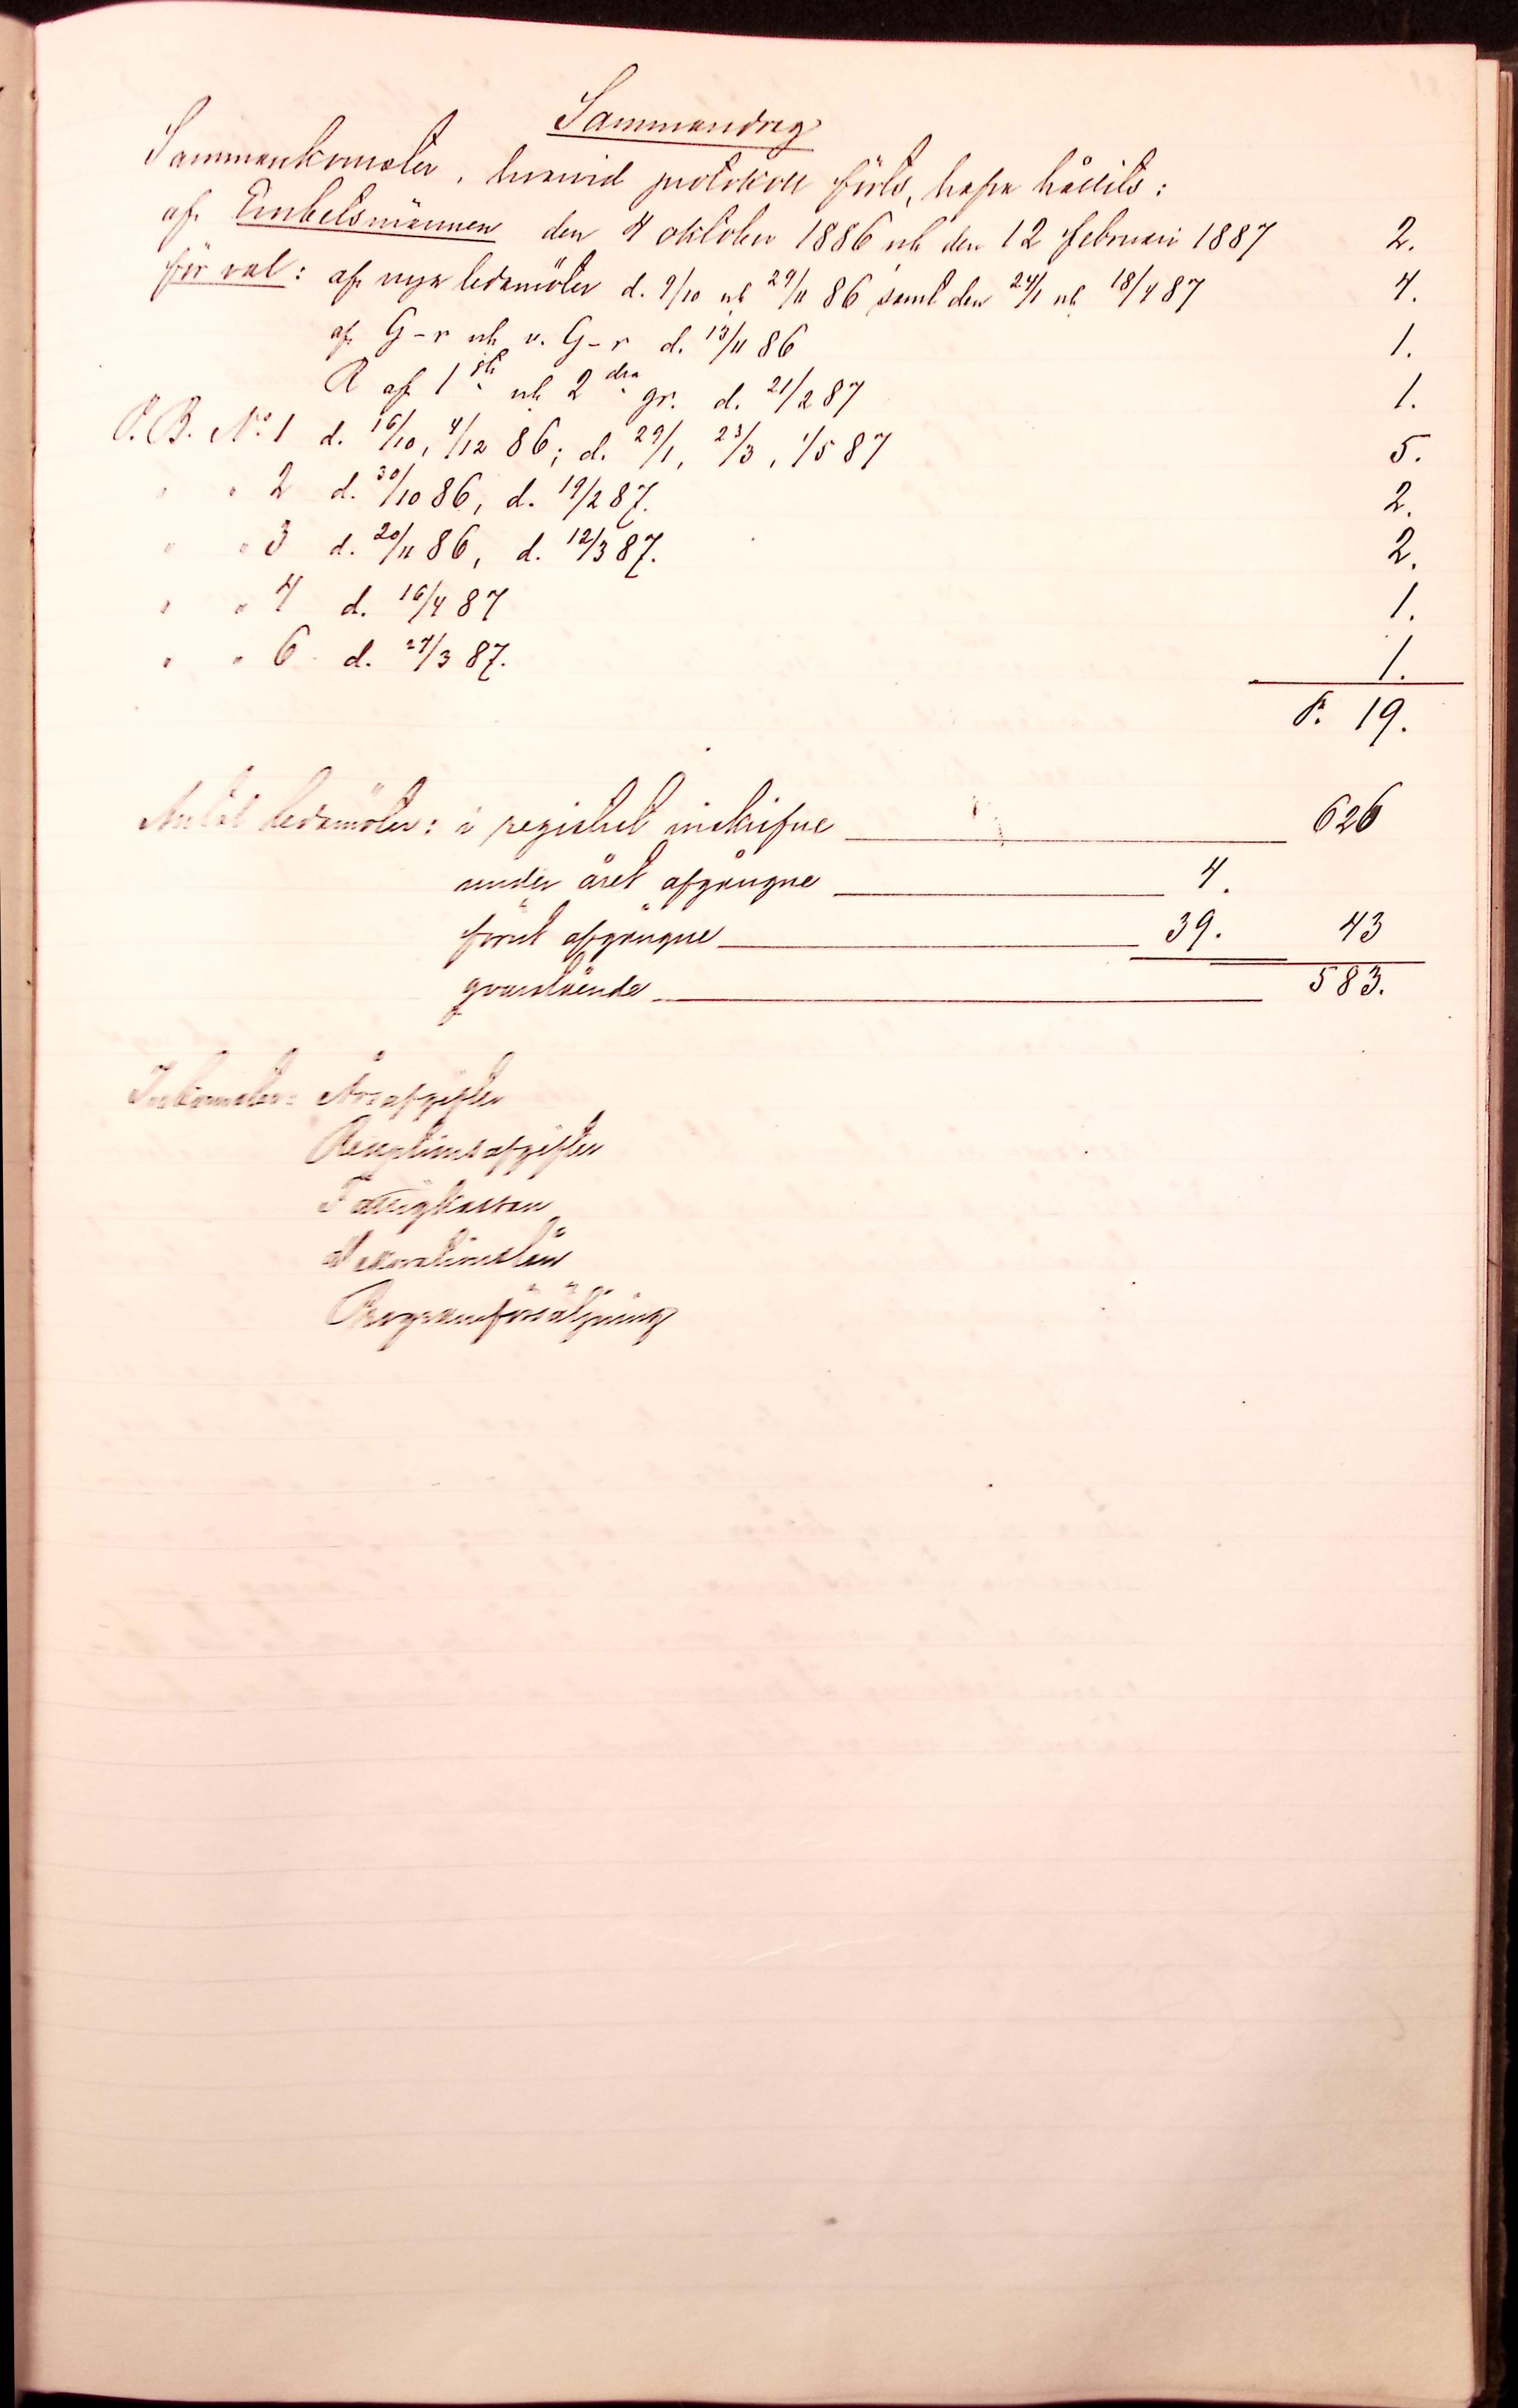 Sammandrag
Sammankomster, hvarvid protokoll förts, hafva hållits:
af Embetsmännen den 4 oktober 1886 och den 12 februari 1887 2.
för val: af nya ledamöter d. 9/10 och 29/11 86 samt den 24/1 och 18/4 87 4.
af G-r och v. G-r d. 13/11 86 1.
R af 1sta och 2dra gr. d. 21/2 87 1.
O. B. No 1 d. 16/10, 4/12 86; d. 29/1, 23/3, 1/5 87 5.
" " 2 d. 30/10 86, d. 19/2 87. 2.
" " 3 d. 20/11 86, d. 12/3 87. 2.
" " 4 d. 16/4 87 1.
" " 6 d. 27/3 87. 1.
S:a 19.
Antal ledamöter: i registret inskrifne 626
under året afgångne 4.
förut afgångne 39. 43
qvarstående 583.
Inkomster: Årsafgifter
Receptionsafgifter
Fattigkassan
Dekorationslån
Programförsäljning